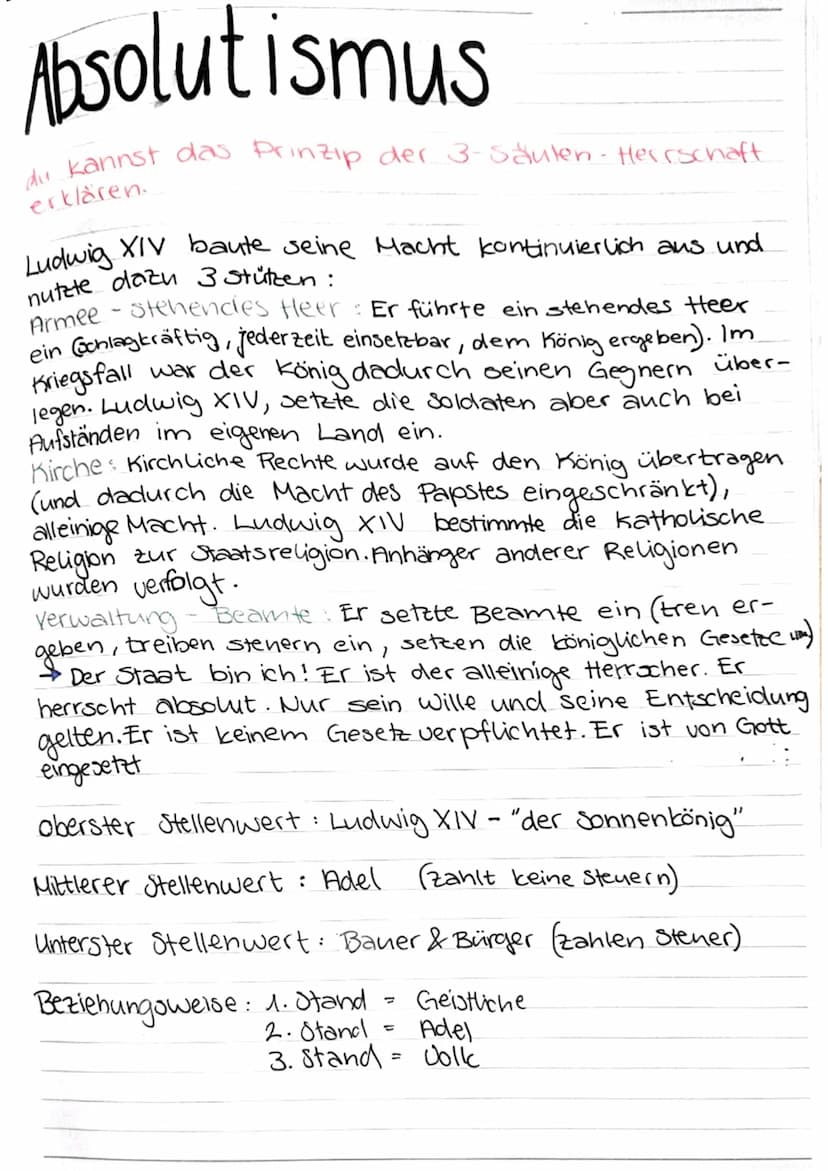 Absolutismus
du kannst das Prinzip der 3-Säulen-Herrschaft
erklären.
Ludwig XIV baute seine Macht kontinuierlich aus und
nutzte dazu 3 Stützen:
Armee - stehendes Heer: Er führte ein stehendes Heer
ein (schlagkräftig, jederzeit einsetzbar, dem König ergeben). Im
Kriegsfall war der König dadurch seinen Gegnern über-
legen. Ludwig XIV, setzte die Soldaten aber auch bei
Aufständen im eigenen Land ein.
Kirche: Kirchliche Rechte wurde auf den König übertragen
(und dadurch die Macht des Papstes eingeschränkt),
alleinige Macht. Ludwig XIV bestimmte die katholische
Religion zur Staatsreligion. Anhänger anderer Religionen
wurden verfolgt.
Verwaltung - Beamte: Er setzte Beamte ein (treu er-
geben, treiben steuern ein, setzen die königlichen Gesetze um)
→ Der Staat bin ich! Er ist der alleinige Herrscher. Er
herrscht absolut. Nur sein Wille und seine Entscheidung
gelten. Er ist keinem Gesetz verpflichtet. Er ist von Gott
eingesetzt
oberster Stellenwert: Ludwig XIV - "der Sonnenkönig"
Mittlerer Stellenwert: Adel (zahlt keine Steuern)
Unterster Stellenwert: Bauer & Bürger (zahlen Steuer)
Beziehungsweise: 1. Stand = Geistliche
2. Stand = Adel
3. Stand = Volk